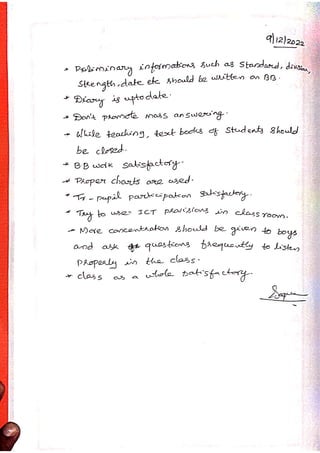 9/12/2022
→ Preliminary informations such as Standard, division,
strength, date etc should be written on BB.
→ Diary is uptodate.
→ Don't promote mass answering.
→ While teaching, text books of students should
be closed.
→ BB work satisfactory.
→ Proper charts are used.
→ Tr-pupil participation satisfactory.
→ Try to use ICT provisions in classroom.
→ More concentration should be given to boys
and ask questions frequently to listen
properly in the class.
→ class as a whole satisfactory.